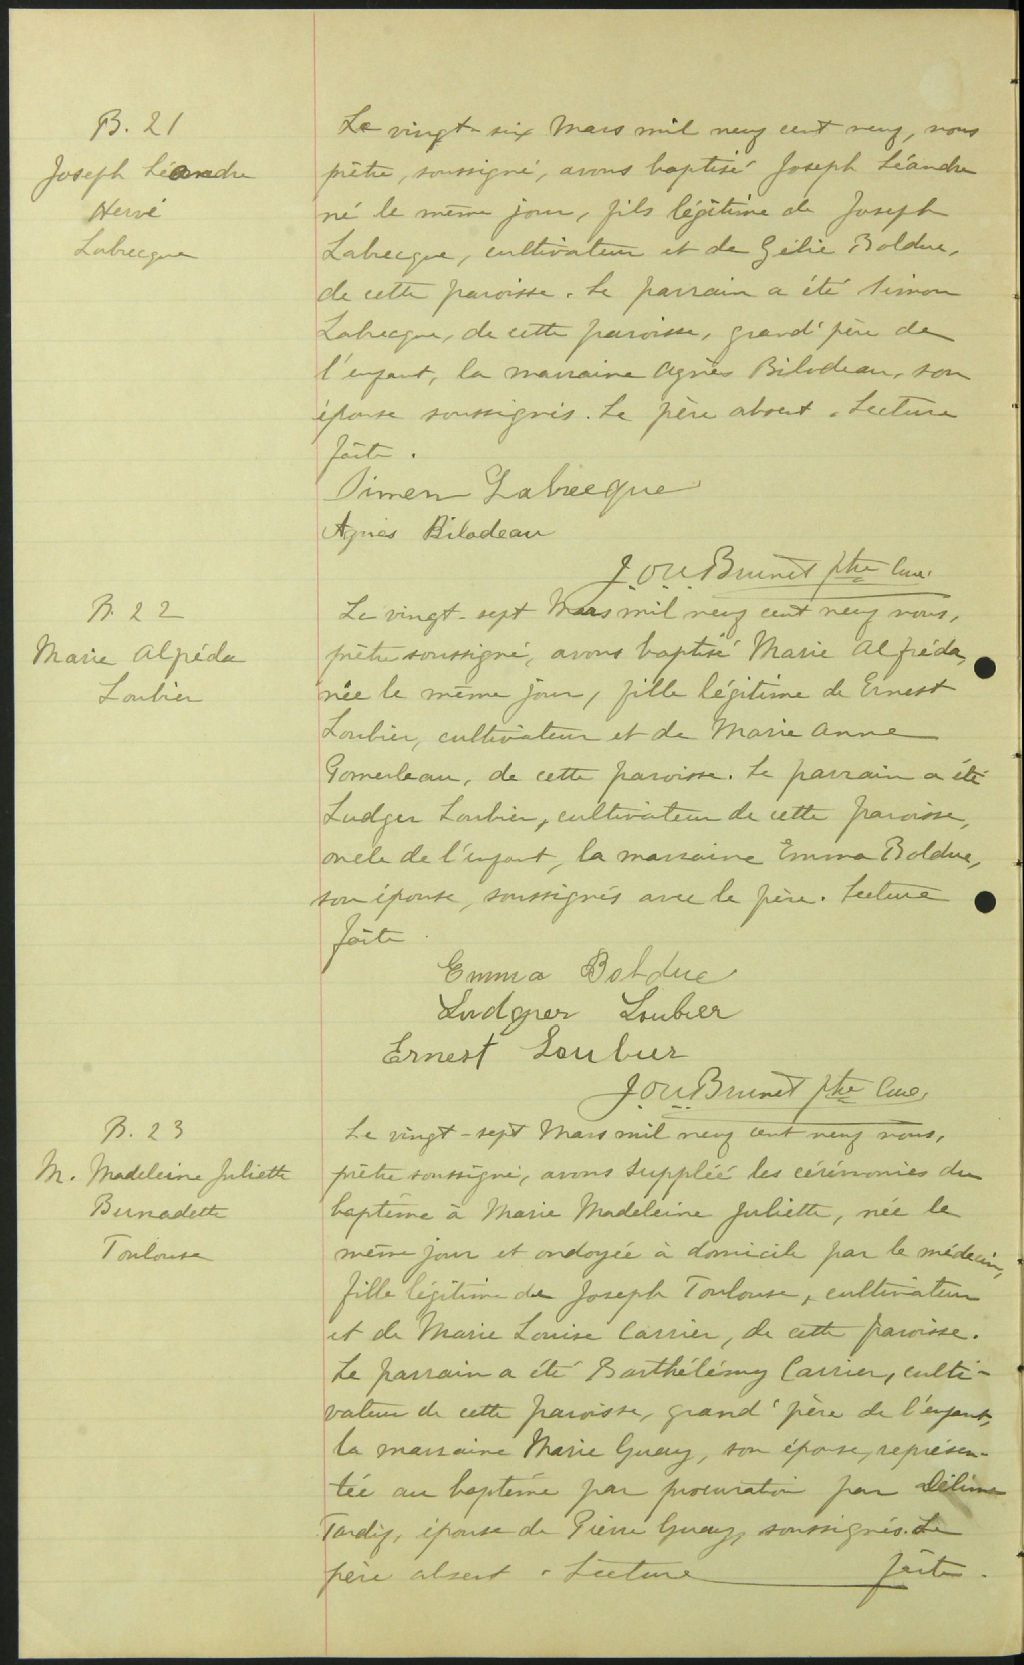 B. 21
Joseph Léandre
Hervé
Labrecque
Le vingt-six Mars mil neuf cent neuf, nous
prêtre, soussigné, avons baptisé Joseph Léandre
né le même jour, fils légitime de Joseph
Labrecque, cultivateur et de Zélie Bolduc,
de cette paroisse. Le parrain a été Simon
Labrecque, de cette paroisse, grand'père de
l'enfant, la marraine Agnès Bilodeau, son
épouse soussignés. Le père absent. Lecture
faite.
Simon Labrecque
Agnès Bilodeau
J. O. U. Brunet ptre Curé
B. 22
Marie Alfréda
Loubier
Le vingt-sept Mars mil neuf cent neuf nous,
prêtre soussigné, avons baptisé Marie Alfréda,
née le même jour, fille légitime de Ernest
Loubier, cultivateur et de Marie Anne
Pomerleau, de cette paroisse. Le parrain a été
Ludger Loubier, cultivateur de cette paroisse,
oncle de l'enfant, la marraine Emma Bolduc,
son épouse, soussignés avec le père. Lecture
faite
Emma Bolduc
Ludger Loubier
Ernest Loubier
J. O. U. Brunet ptre Curé
B. 23
M. Madeleine Juliette
Bernadette
Toulouse
Le vingt-sept Mars mil neuf cent neuf nous,
prêtre soussigné, avons suppléé les cérémonies du
baptême à Marie Madeleine Juliette, née le
même jour et ondoyée à domicile par le médecin,
fille légitime de Joseph Toulouse, cultivateur
et de Marie Louise Carrier, de cette paroisse.
Le parrain a été Barthélémy Carrier, culti-
vateur de cette paroisse, grand'père de l'enfant,
la marraine Marie Guay, son épouse, représen-
tée au baptême par procuration par Délima
Tardif, épouse de Pierre Guay, soussignés. Le
père absent. Lecture faite.